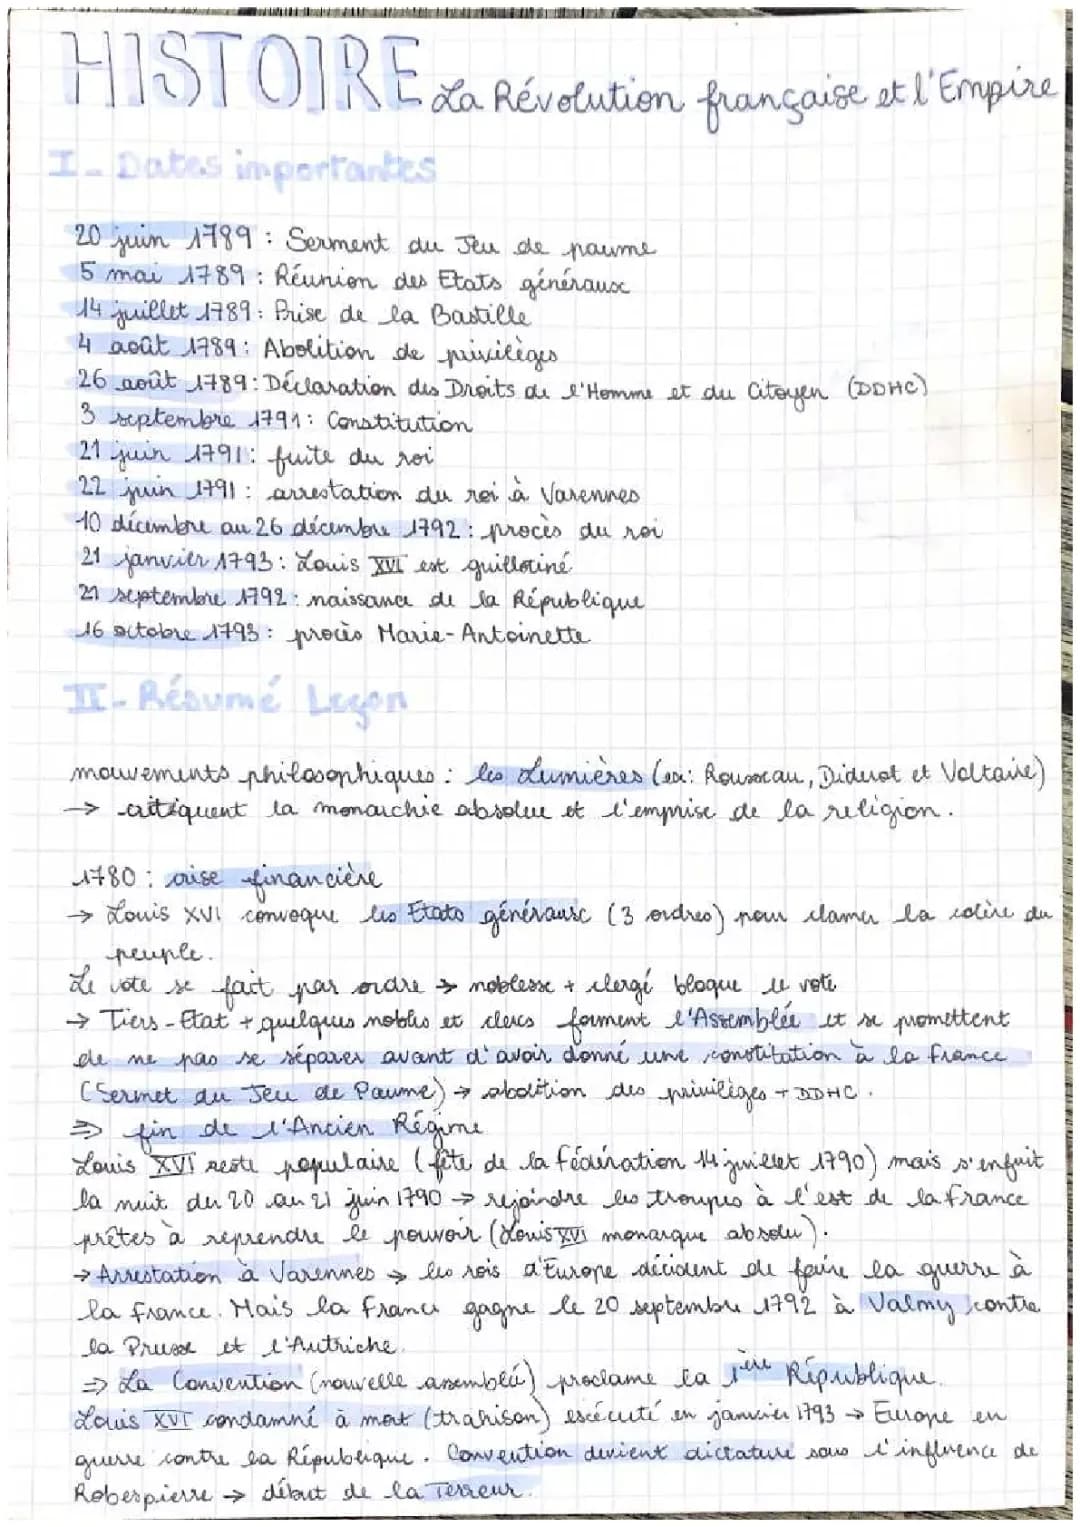 HISTOIRE La Révolution française et l'Empire
I - Dates importantes
20 juin 1789 : Serment du Jeu de paume
5 mai 1789 : Réunion des Etats généraux
14 juillet 1789 : Prise de la Bastille
4 août 1789 : Abolition de privilèges
26 août 1789 : Déclaration des Droits de l'Homme et du Citoyen (DDHC)
3 septembre 1791 : Constitution
21 juin 1791 : fuite du roi
22 juin 1791 : arrestation du roi à Varennes
10 décembre au 26 décembre 1792 : procès du roi
21 janvier 1793 : Louis XVI est guillotiné
21 septembre 1792 : naissance de la République
16 octobre 1793 : procès Marie-Antoinette
II - Résumé Leçon
mouvements philosophiques : les Lumières (ex: Rousseau, Diderot et Voltaire)
→ critiquent la monarchie absolue et l'emprise de la religion.
1780 : crise financière
→ Louis XVI convoque les Etats généraux (3 ordres) pour clamer la colère du
peuple.
Le vote se fait par ordre → noblesse + clergé bloque le vote
→ Tiers-Etat + quelques nobles et clercs forment l'Assemblée et se promettent
de ne pas se séparer avant d'avoir donné une constitution à la France
(Sermet du Jeu de Paume) → abolition des privilèges + DDHC.
⇒ fin de l'Ancien Régime
Louis XVI reste populaire (fête de la fédération 14 juillet 1790) mais s'enfuit
la nuit du 20 au 21 juin 1790 → rejoindre les troupes à l'est de la France
prêtes à reprendre le pouvoir (Louis XVI monarque absolu).
→ Arrestation à Varennes → les rois d'Europe décident de faire la guerre à
la France. Mais la France gagne le 20 septembre 1792 à Valmy contre
la Prusse et l'Autriche.
⇒ La Convention (nouvelle assemblée) proclame la 1ère République.
Louis XVI condamné à mort (trahison) exécuté en janvier 1793 → Europe en
guerre contre la République. Convention devient dictature sous l'influence de
Robespierre → début de la Terreur.